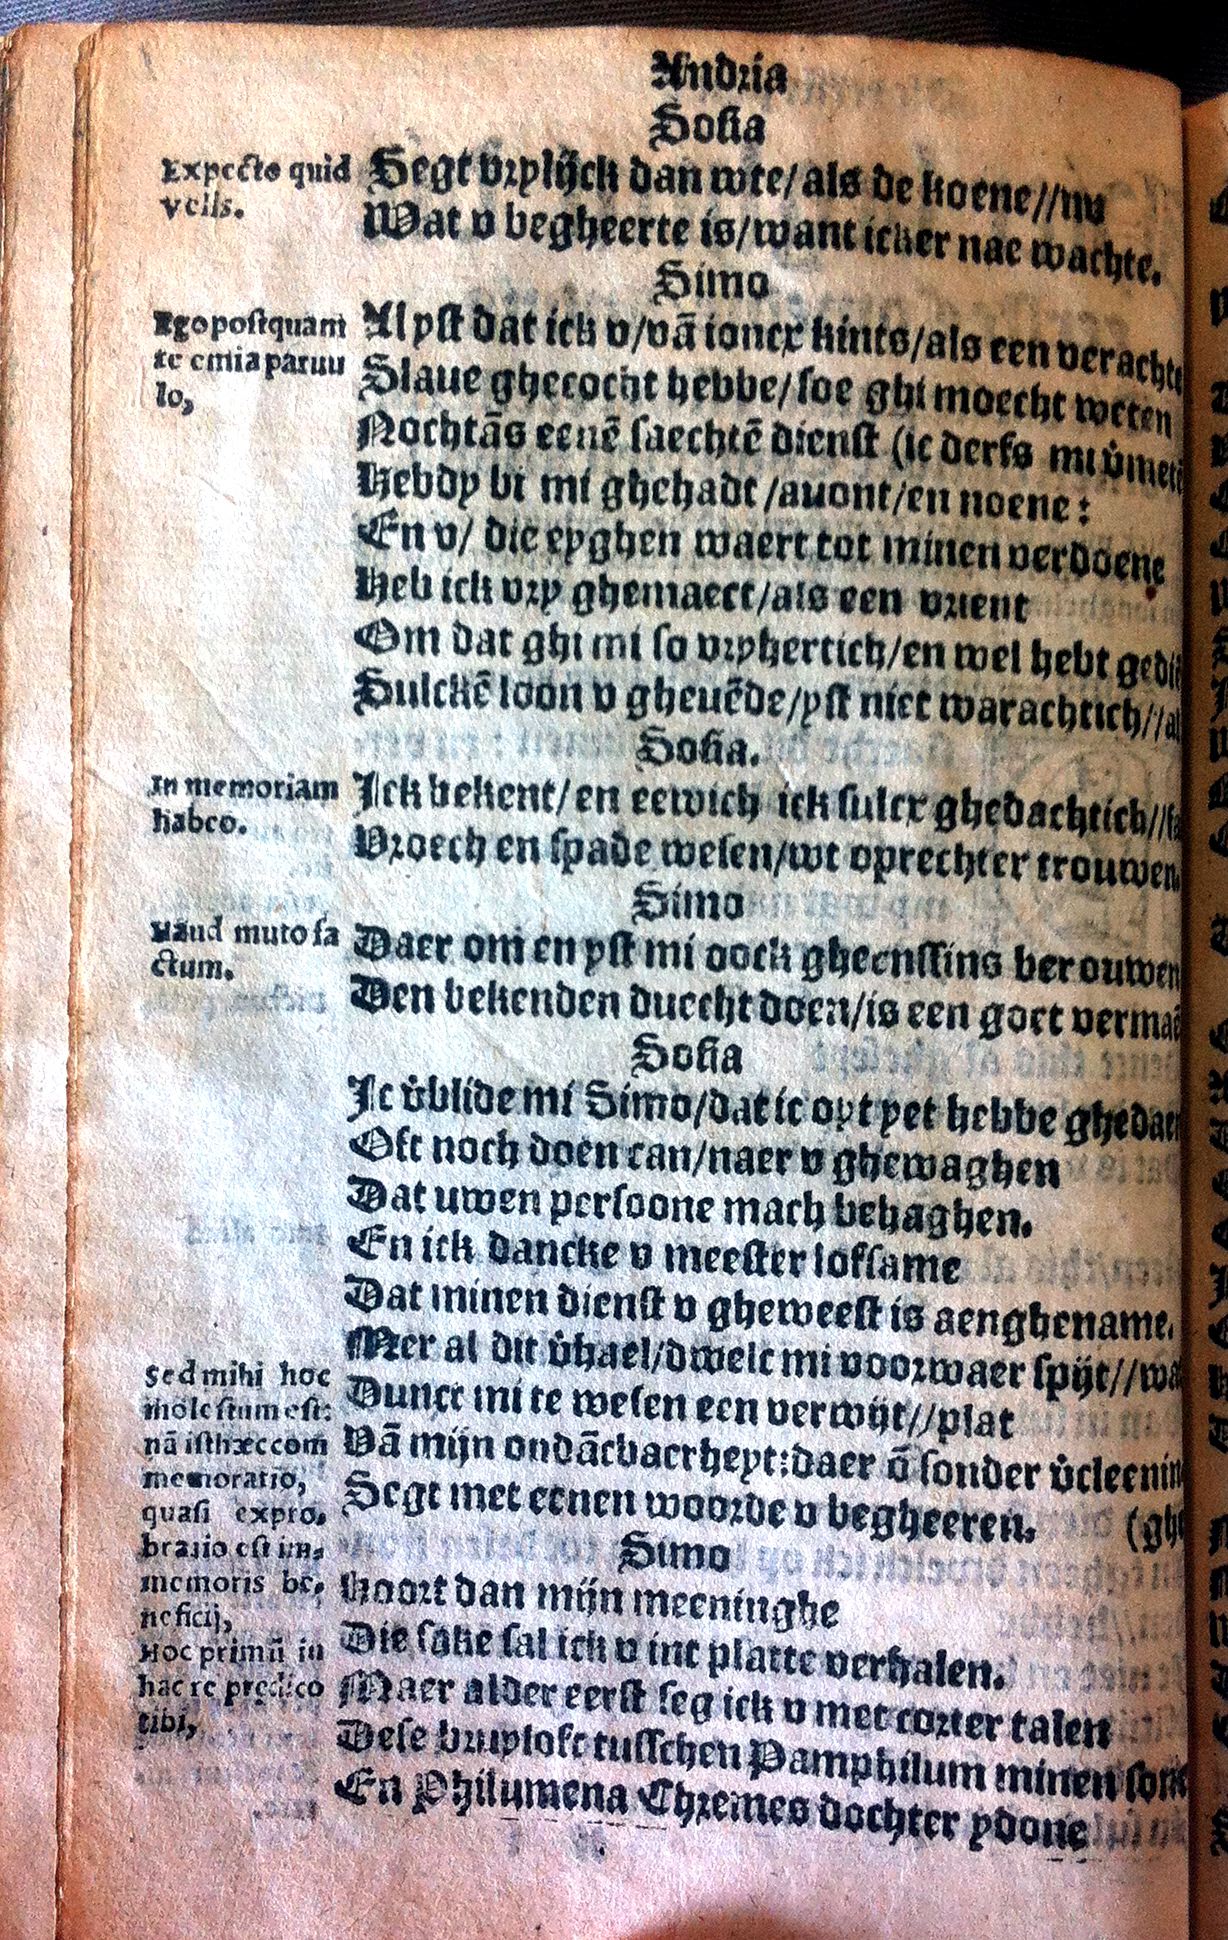 Andria
Sosia
Expecto quid
velis.
Segt vrylijck dan wte/als de koene//nu
Wat v begheerte is/want icker nae wachte.
Simo
Ego postquam
te emi a paruu
lo,
Al yst dat ick v/vā ioncx kints/als een verachte
Slaue ghecocht hebbe/soe ghi moecht weten
Nochtās eenē saechtē dienst (ic derfs mi
Hebdy bi mi ghehadt/auont/en noene:
En v/ die eyghen waert tot minen verdoene
Heb ick vry ghemaect/als een vrient
Om dat ghi mi so vryhertich/en wel hebt
Sulckē loon v gheuēde/yst niet warachtich//
Sosia.
In memoriam
habeo.
Ick bekent/en eewich ick sulcx ghedachtich//
Vroech en spade wesen/wt oprechter trouwen.
Simo
Haud muto fa
ctum.
Daer om en yst mi oock gheenssins berouwen
Den bekenden duecht doen/is een goet
Sosia
Ic v̊blide mi Simo/dat ic oyt yet hebbe
Oft noch doen can/naer v ghewaghen
Dat uwen persoone mach behaghen.
En ick dancke v meester lofsame
Dat minen dienst v gheweest is aenghename.
Mer al dit v̊hael/dwelc mi voorwaer spijt//
Dunct mi te wesen een verwijt//plat
Vā mijn ondācbaerheyt:daer ō sonder
Segt met eenen woorde v begheeren.
Sed mihi hoc
molestum est:
nā isthæc com
memoratio,
quasi expro-
bratio est im-
memoris be-
neficij,
Simo
Hoort dan mijn meeninghe
Die sake sal ick v int platte verhalen.
Hoc primū in
hac re prędico
tibi,
Maer alder eerst seg ick v met corter talen
Dese bruyloft tusschen Pamphilum minen
En Philumena Chremes dochter ydone